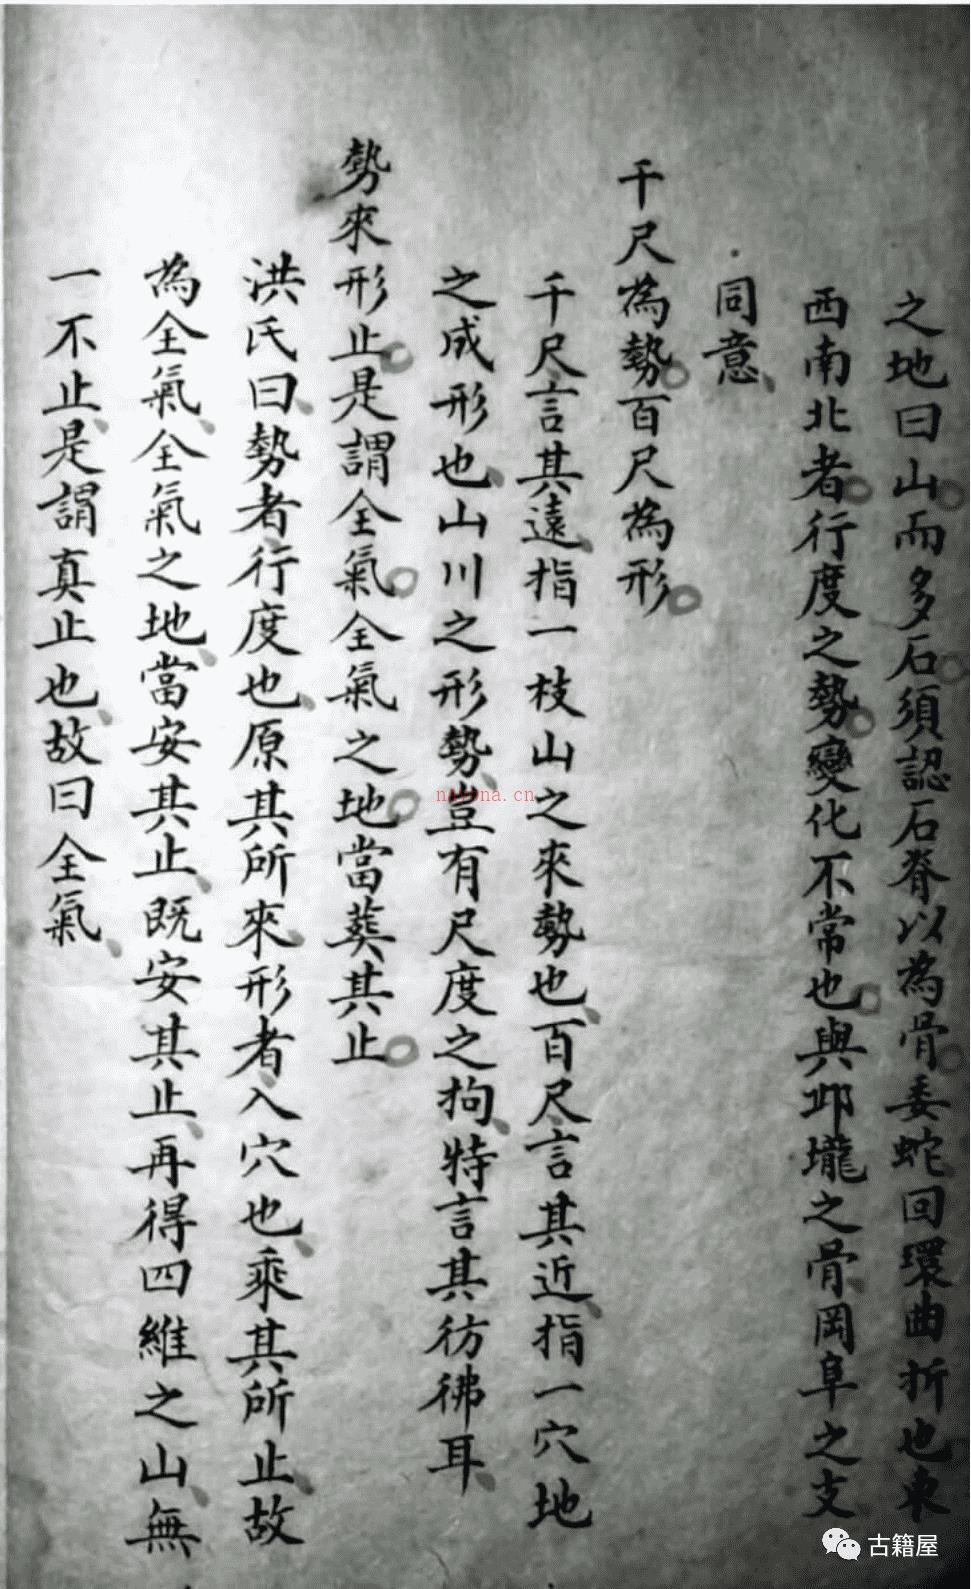 之地曰山而多石須認石脊以為骨委蛇回環曲折也東
西南北者行度之勢變化不常也與邱壠之骨岡阜之支
同意
千尺為勢百尺為形
千尺言其遠指一枝山之來勢也百尺言其近指一穴地
之成形也山川之形勢豈有尺度之拘特言其彷彿耳
勢來形止是謂全氣全氣之地當葬其止
洪氏曰勢者行度也原其所來形者入穴也乘其所止故
為全氣全氣之地當安其止既安其止再得四維之山無
一不止是謂真止也故曰全氣
nayona.cn
古籍屋